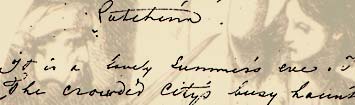 It is a lovely Summer's eve. I
The crowded City's busy haunt